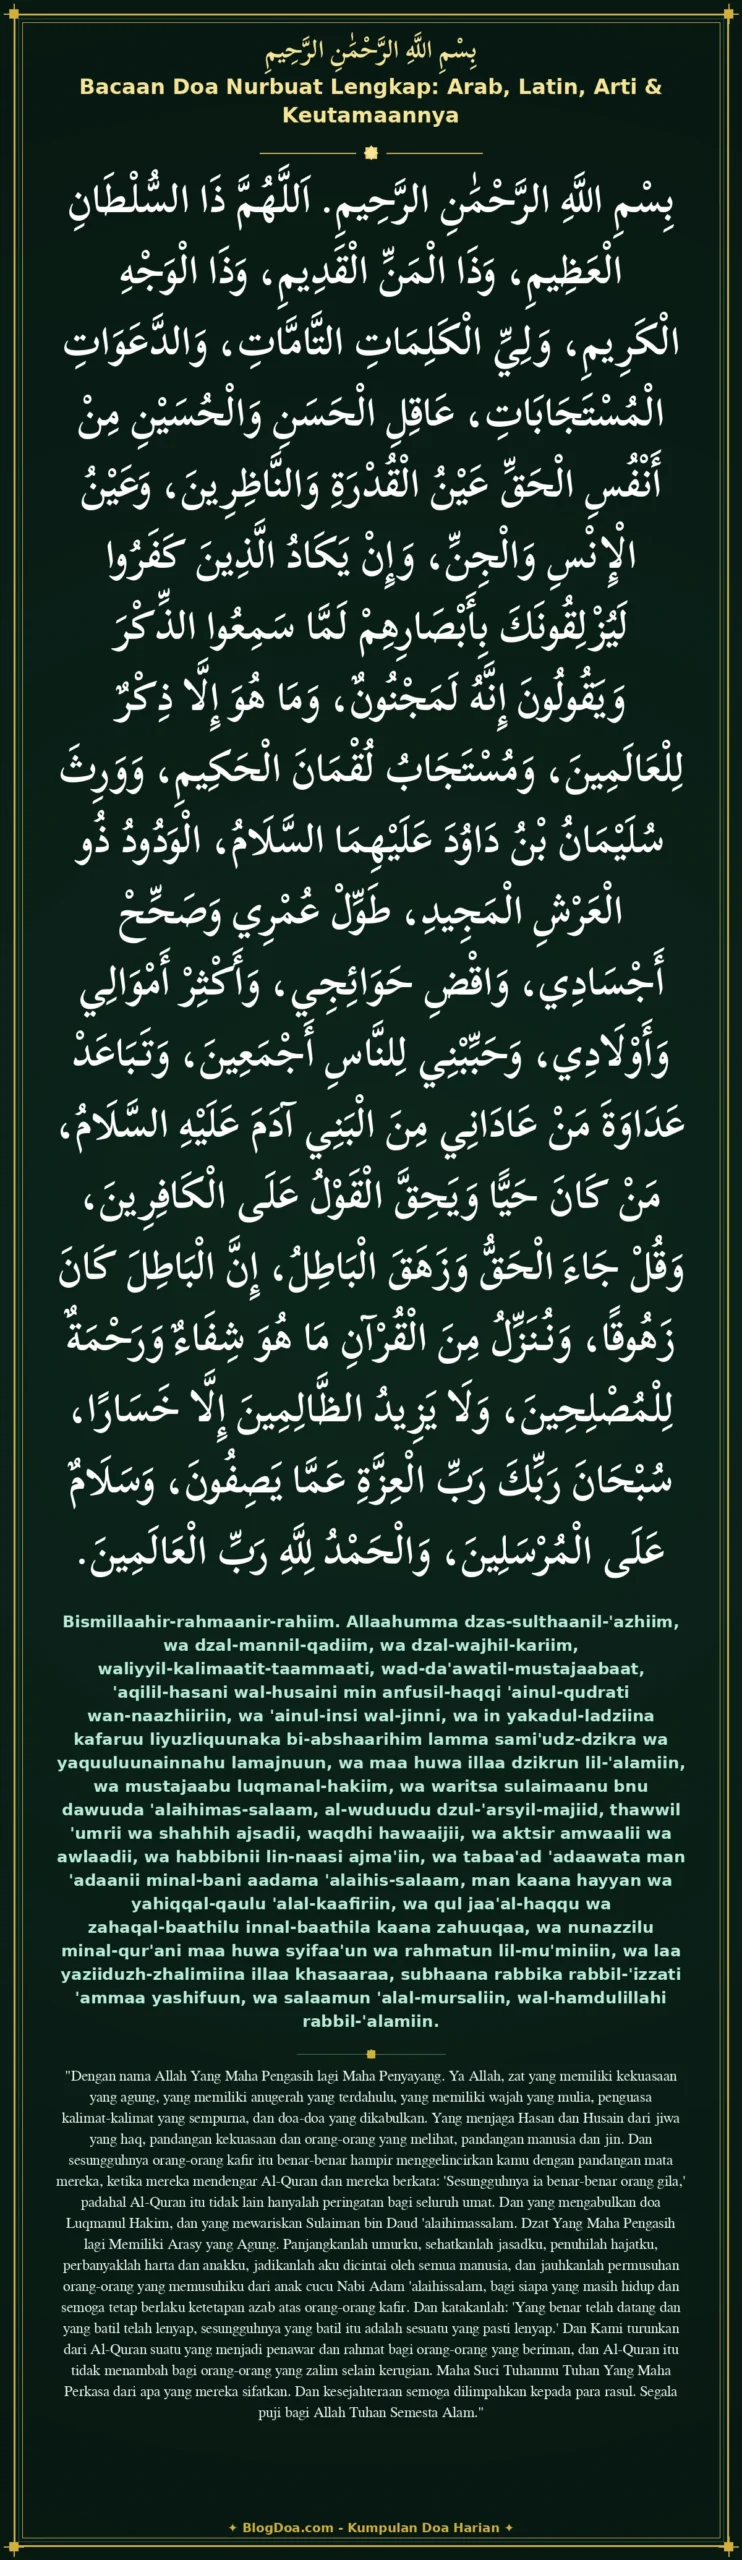 بِسْمِ اللَّهِ الرَّحْمَٰنِ الرَّحِيمِ
Bacaan Doa Nurbuat Lengkap: Arab, Latin, Arti &
Keutamaannya
بِسْمِ اللَّهِ الرَّحْمَٰنِ الرَّحِيمِ. اَللَّهُمَّ ذَا السُّلْطَانِ
الْعَظِيمِ، وَذَا الْمَنِّ الْقَدِيمِ، وَذَا الْوَجْهِ
الْكَرِيمِ، وَلِيِّ الْكَلِمَاتِ التَّامَّاتِ، وَالدَّعَوَاتِ
الْمُسْتَجَابَاتِ، عَاقِلِ الْحَسَنِ وَالْحُسَيْنِ مِنْ
أَنْفُسِ الْحَقِّ عَيْنُ الْقُدْرَةِ وَالنَّاظِرِينَ، وَعَيْنُ
الْإِنْسِ وَالْجِنِّ، وَإِنْ يَكَادُ الَّذِينَ كَفَرُوا
لَيُزْلِقُونَكَ بِأَبْصَارِهِمْ لَمَّا سَمِعُوا الذِّكْرَ
وَيَقُولُونَ إِنَّهُ لَمَجْنُونٌ، وَمَا هُوَ إِلَّا ذِكْرٌ
لِلْعَالَمِينَ، وَمُسْتَجَابُ لُقْمَانَ الْحَكِيمِ، وَوَرِثَ
سُلَيْمَانُ بْنُ دَاوُدَ عَلَيْهِمَا السَّلَامُ، الْوَدُودُ ذُو
الْعَرْشِ الْمَجِيدِ، طَوِّلْ عُمْرِي وَصَحِّحْ
أَجْسَادِي، وَاقْضِ حَوَائِجِي، وَأَكْثِرْ أَمْوَالِي
وَأَوْلَادِي، وَحَبِّبْنِي لِلنَّاسِ أَجْمَعِينَ، وَتَبَاعَدْ
عَدَاوَةَ مَنْ عَادَانِي مِنَ الْبَنِي آدَمَ عَلَيْهِ السَّلَامُ،
مَنْ كَانَ حَيًّا وَيَحِقَّ الْقَوْلُ عَلَى الْكَافِرِينَ،
وَقُلْ جَاءَ الْحَقُّ وَزَهَقَ الْبَاطِلُ، إِنَّ الْبَاطِلَ كَانَ
زَهُوقًا، وَنُنَزِّلُ مِنَ الْقُرْآنِ مَا هُوَ شِفَاءٌ وَرَحْمَةٌ
لِلْمُصْلِحِينَ، وَلَا يَزِيدُ الظَّالِمِينَ إِلَّا خَسَارًا،
سُبْحَانَ رَبِّكَ رَبِّ الْعِزَّةِ عَمَّا يَصِفُونَ، وَسَلَامٌ
عَلَى الْمُرْسَلِينَ، وَالْحَمْدُ لِلَّهِ رَبِّ الْعَالَمِينَ.
Bismillaahir-rahmaanir-rahiim. Allaahumma dzas-sulthaanil-'azhiim,
wa dzal-mannil-qadiim, wa dzal-wajhil-kariim,
waliyyil-kalimaatit-taammaati, wad-da'awatil-mustajaabaat,
'aqilil-hasani wal-husaini min anfusil-haqqi 'ainul-qudrati
wan-naazhiiriin, wa 'ainul-insi wal-jinni, wa in yakadul-ladziina
kafaruu liyuzliquunaka bi-abshaarihim lamma sami'udz-dzikra wa
yaquuluunainnahu lamajnuun, wa maa huwa illaa dzikrun lil-'alamiin,
wa mustajaabu luqmanal-hakiim, wa waritsa sulaimaanu bnu
dawuuda 'alaihimas-salaam, al-wuduudu dzul-'arsyil-majiid, thawwil
'umrii wa shahhih ajsadii, waqdhi hawaaijii, wa aktsir amwaalii wa
awlaadii, wa habbibnii lin-naasi ajma'iin, wa tabaa'ad 'adaawata man
'adaanii minal-bani aadama 'alaihis-salaam, man kaana hayyan wa
yahiqqal-qaulu 'alal-kaafiriin, wa qul jaa'al-haqqu wa
zahaqal-baathilu innal-baathila kaana zahuuqaa, wa nunazzilu
minal-qur'ani maa huwa syifaa'un wa rahmatun lil-mu'miniin, wa laa
yaziiduzh-zhalimiina illaa khasaaraa, subhaana rabbika rabbil-'izzati
'ammaa yashifuun, wa salaamun 'alal-mursaliin, wal-hamdulillahi
rabbil-'alamiin.
"Dengan nama Allah Yang Maha Pengasih lagi Maha Penyayang. Ya Allah, zat yang memiliki kekuasaan
yang agung, yang memiliki anugerah yang terdahulu, yang memiliki wajah yang mulia, penguasa
kalimat-kalimat yang sempurna, dan doa-doa yang dikabulkan. Yang menjaga Hasan dan Husain dari jiwa
yang haq, pandangan kekuasaan dan orang-orang yang melihat, pandangan manusia dan jin. Dan
sesungguhnya orang-orang kafir itu benar-benar hampir menggelincirkan kamu dengan pandangan mata
mereka, ketika mereka mendengar Al-Quran dan mereka berkata: 'Sesungguhnya ia benar-benar orang gila,'
padahal Al-Quran itu tidak lain hanyalah peringatan bagi seluruh umat. Dan yang mengabulkan doa
Luqmanul Hakim, dan yang mewariskan Sulaiman bin Daud 'alaihimassalam. Dzat Yang Maha Pengasih
lagi Memiliki Arasy yang Agung. Panjangkanlah umurku, sehatkanlah jasadku, penuhilah hajatku,
perbanyaklah harta dan anakku, jadikanlah aku dicintai oleh semua manusia, dan jauhkanlah permusuhan
orang-orang yang memusuhiku dari anak cucu Nabi Adam 'alaihissalam, bagi siapa yang masih hidup dan
semoga tetap berlaku ketetapan azab atas orang-orang kafir. Dan katakanlah: 'Yang benar telah datang dan
yang batil telah lenyap, sesungguhnya yang batil itu adalah sesuatu yang pasti lenyap.' Dan Kami turunkan
dari Al-Quran suatu yang menjadi penawar dan rahmat bagi orang-orang yang beriman, dan Al-Quran itu
tidak menambah bagi orang-orang yang zalim selain kerugian. Maha Suci Tuhanmu Tuhan Yang Maha
Perkasa dari apa yang mereka sifatkan. Dan kesejahteraan semoga dilimpahkan kepada para rasul. Segala
puji bagi Allah Tuhan Semesta Alam."
✦ BlogDoa.com - Kumpulan Doa Harian ✦